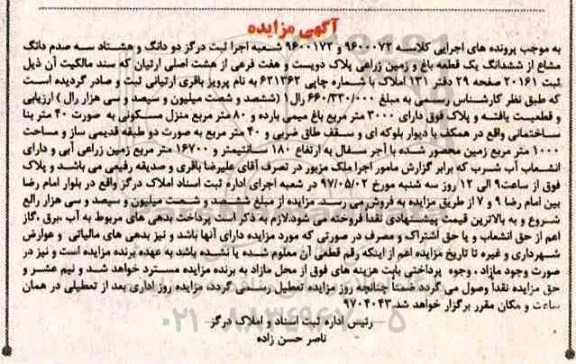 آگهی مزایده
به موجب پرونده های اجرایی کلاسه ۹۶۰۰۰۷۳ و ۹۶۰۰۱۷۲ شعبه اجرا ثبت درگز دو دانگ و هشتاد سه صدم دانگ
مشاع از ششدانگ یک قطعه باغ و زمین زراعی پلاک دویست و هفت فرعی از هشت اصلی ارتیان که سند مالکیت آن ذیل
ثبت ۲۰۱۶۱ صفحه ۲۹ دفتر ۱۳۱ املاک با شماره چاپی ۶۲۱۳۶۲ به نام پرویز باقری ارتیانی ثبت و صادر گردیده است
که طبق نظر کارشناس رسمی به مبلغ ۶۶۰/۳۳۰/۰۰۰ ریال (ششصد و شصت میلیون و سیصد و سی هزار ریال) ارزیابی
و قطعیت یافته و پلاک فوق دارای ۳۰۰۰ متر مربع باغ میمی بارده و ۸۰ متر مربع منزل مسکونی به صورت ۴۰ متر بنا
ساختمانی واقع در همکف با دیوار بلوکه ای و سقف طاق ضربی و ۴۰ متر مربع به صورت دو طبقه قدیمی ساز و مساحت
۱۰۰۰ متر مربع زمین محصور شده با آجر سفال به ارتفاع ۱۸۰ سانتیمتر و ۱۶۷۰۰ متر مربع زمین زراعی آبی و دارای
انشعاب آب شرب که برابر گزارش مامور اجرا ملک مزبور در تصرف آقای علیرضا باقری و صدیقه رفیعی می باشد و پلاک
فوق از ساعت ۹ الی ۱۲ روز سه شنبه مورخ ۹۷/۰۵/۰۲ در شعبه اجرای اداره ثبت اسناد املاک درگز واقع در بلوار امام رضا
بین امام رضا ۹ و ۷ از طریق مزایده به فروش می رسد. مزایده از مبلغ ششصد و شصت میلیون و سیصد و سی هزار رالع
شروع و به بالاترین قیمت پیشنهادی نقداً فروخته می شود. لازم به ذکر است پرداخت بدهی های مربوط به آب ،برق ،گاز
اعم از حق انشعاب و یا حق اشتراک و مصرف در صورتی که مورد مزایده دارای آنها باشد و نیز بدهی های مالیاتی و عوارض
شهرداری و غیره تا تاریخ مزایده اعم از اینکه رقم قطعی آن معلوم شده یا نشده باشد به عهده برنده مزایده است و نیز در
صورت وجود مازاد ، وجوه پرداختی بابت هزینه های فوق از محل مازاد به برنده مزایده مسترد خواهد شد و نیم عشر و
حق مزایده نقداً وصول می گردد ضمناً چنانچه روز مزایده تعطیل رسمی گردد، مزایده روز اداری بعد از تعطیلی در همان
ساعت و مکان مقرر برگزار خواهد شد. ۹۷۰۴۰۴۳
رئیس اداره ثبت اسناد و املاک درگز
ناصر حسن زاده
۰۲۱-۸۸۳۴۹۶۷۰-۵